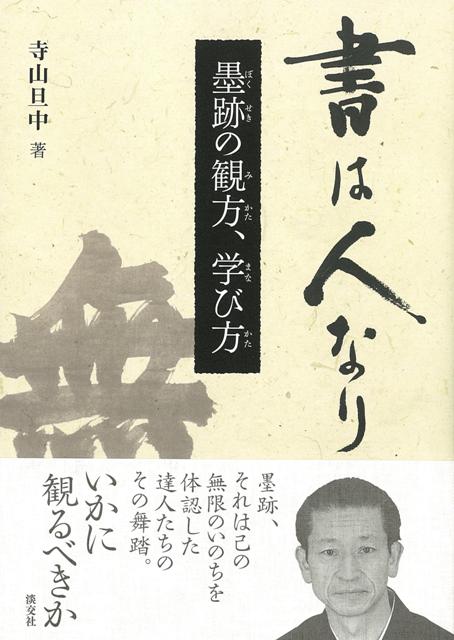 書は人なり
墨跡の観方、学び方
ぼくせき みかた まな かた
寺山旦中 著
無
墨跡、
それは己の
無限のいのちを
体認した
達人たちの
その舞踏。
いかに
観るべきか
淡交社